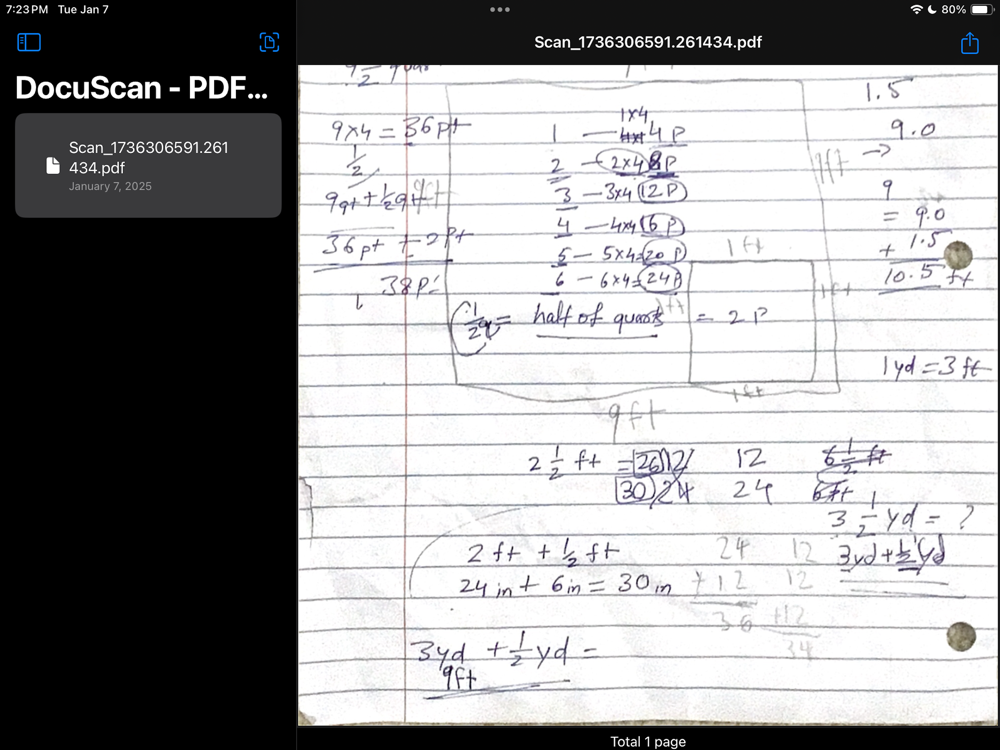 7:23 PM Tue Jan 7
80%
DocuScan - PDF...
Scan_1736306591.261
434.pdf
January 7, 2025
Scan_1736306591.261434.pdf
9×4 = 36pt
1/2
9qt + 1/2qt
36pt + 2Pt
38P
1×4
1 — 4P
2 — 2×4 8P
3 — 3×4 12P
4 — 4×4 16P
5 — 5×4=20P
6 — 6×4=24P
1/2q = half of quart = 2P
9ft
9ft
9ft
1ft
1ft
1ft
1ft
1.5
9.0
→
9
= 9.0
+ 1.5
10.5 ft
1yd = 3ft
2 1/2 ft = 26 12 12 6 1/2 ft
30 24 24 6ft
3 1/2 yd = ?
2 ft + 1/2 ft 24 12 3yd + 1/2 yd
24in + 6in = 30in +12 12
36 +12
34
3yd + 1/2yd =
9ft
Total 1 page